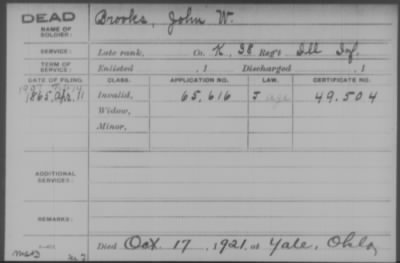 DEAD
NAME OF SOLDIER: Brooks, John W.
SERVICE: Late rank, Co. K, 38 Reg't Ill Inf.
TERM OF SERVICE: Enlisted , 1 Discharged , 1
DATE OF FILING. CLASS. APPLICATION NO. LAW. CERTIFICATE NO.
1865, Apr. 11 Invalid, 65,616 49.504
Widow,
Minor,
ADDITIONAL SERVICES:
REMARKS:
Died Oct. 17, 1921, at Yale, Okla